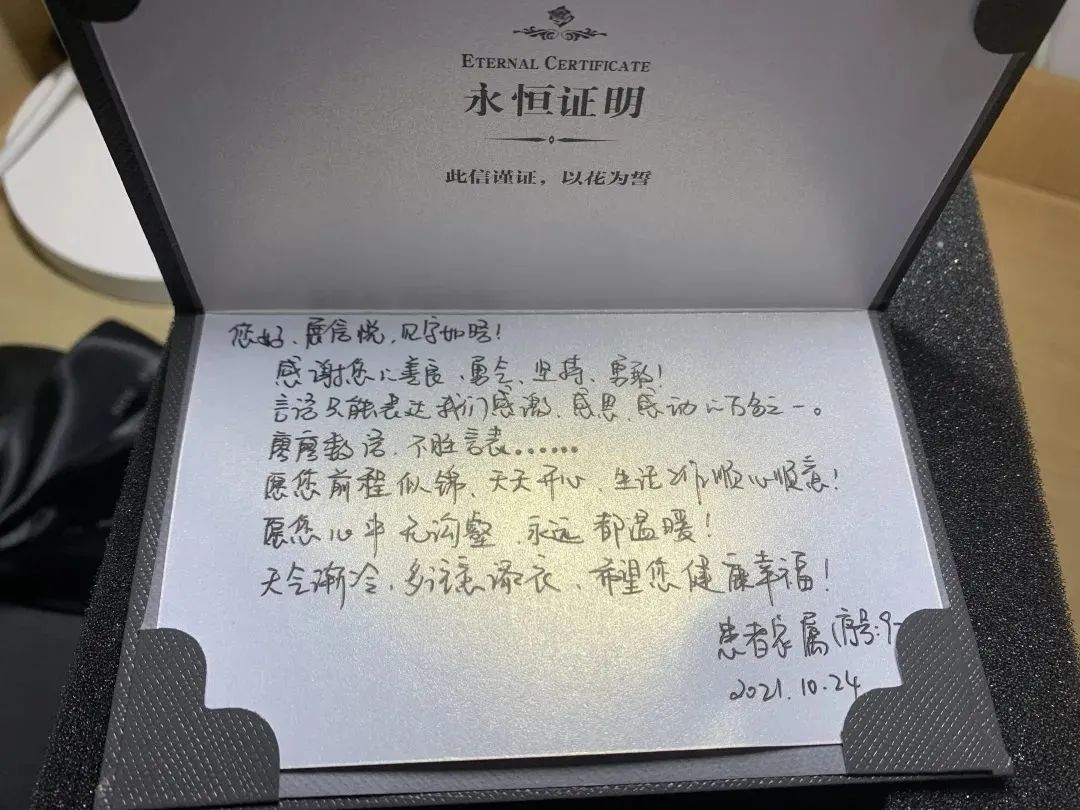 ETERNAL CERTIFICATE
永恒证明
此信谨证，以花为誓
您好、展信悦，见字如晤！
感谢您的善良、勇气、坚持、勇敢！
言语只能表达我们感激、感恩、感动的万分之一。
寥寥数语，不胜言表……
愿您前程似锦、天天开心、生活工作顺心顺意！
愿您心中无沟壑，永远都温暖！
天气渐冷，多注意添衣、希望您健康幸福！
患者家属（序号：9-
2021.10.24